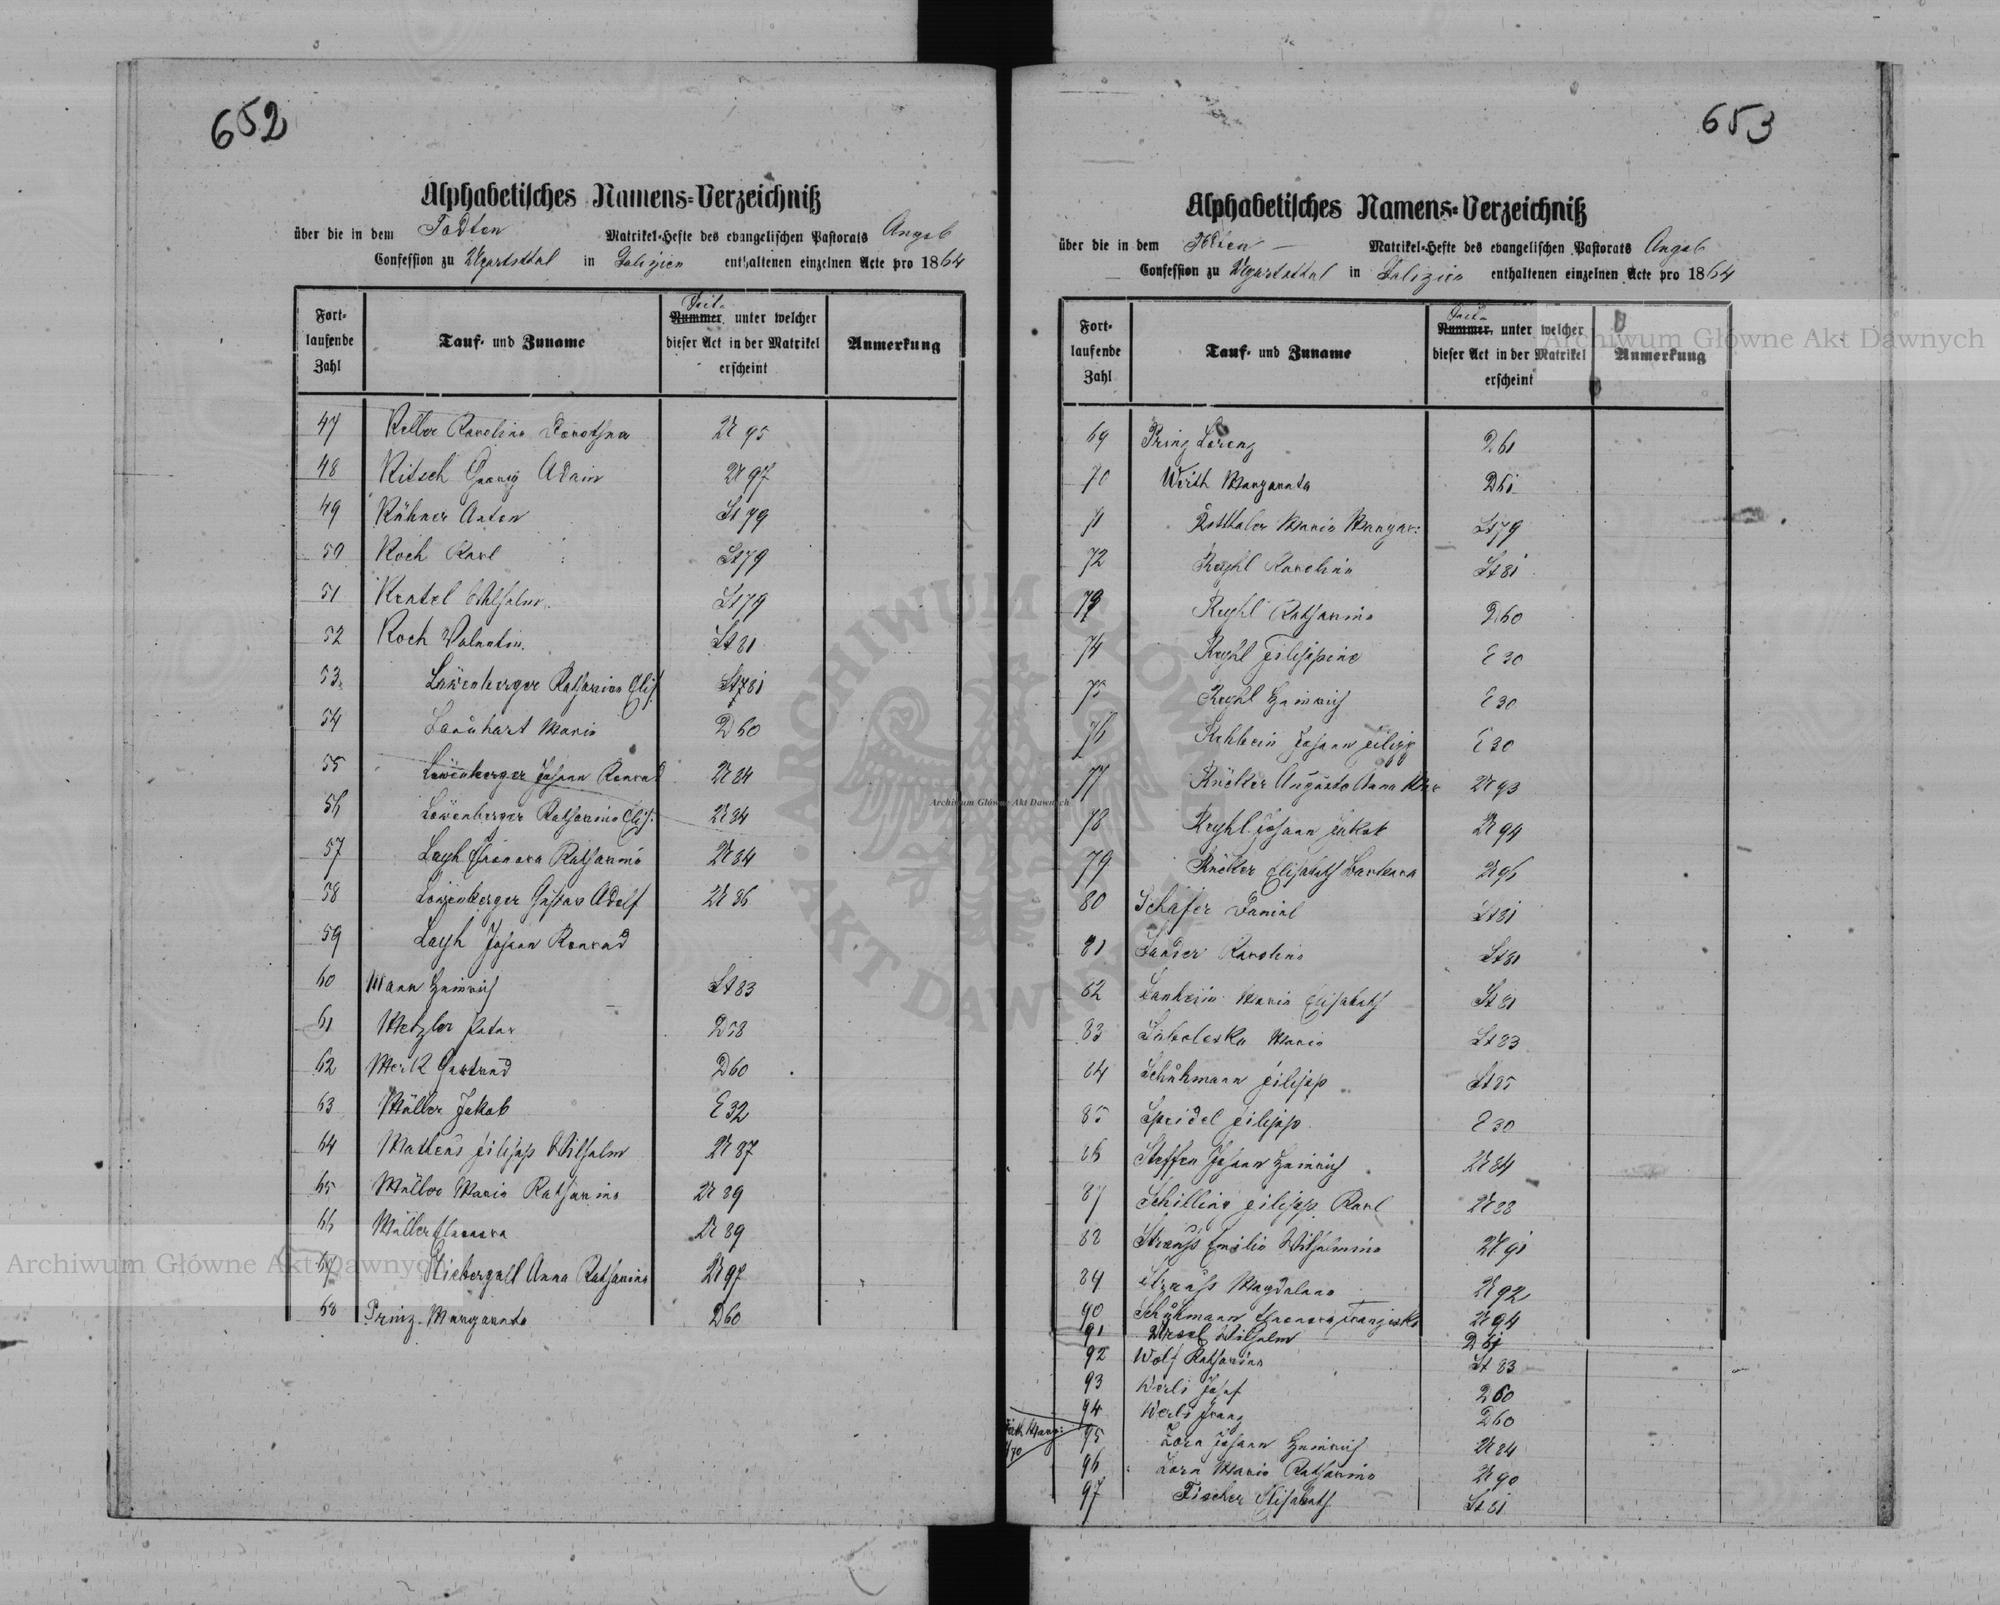 652
Alphabetisches Namens-Verzeichniß
über die in dem Todten Matrikel-Hefte des evangelischen Pastorats Augsb
Confession zu Ugartsthal in Galizien enthaltenen einzelnen Acte pro 1864
Fort-
laufende
Zahl
Tauf- und Zuname
Seite
Nummer unter welcher
dieser Act in der Matrikel
erscheint
Anmerkung
47 Keller Karolina Dorothea U 95
48 Kitsch Georg Adam U 97
49 Kühner Anton St 79
50 Koch Karl St 79
51 Kratel Wilhelm St 79
52 Koch Valentin St 81
53 Löwenberger Katharina Elis. St 81
54 Maria D 60
55 Löwenberger Johann Konrad U 84
56 Löwenberger Katharina Elis. U 84
57 Layh Eleonora Katharina U 84
58 Löwenberger Gustav Adolf U 86
59 Layh Johann Konrad
60 Mann Heinrich St 83
61 Metzler Peter D 58
62 Merk Gertrud D 60
63 Müller Jakob E 32
64 Matheus Filipp Wilhelm U 87
65 Müller Maria Katharina U 89
66 Müller Eleonora U 89
67 Niebergall Anna Katharina U 97
68 Prinz Margaretha D 60
653
Alphabetisches Namens-Verzeichniß
über die in dem Todten Matrikel-Hefte des evangelischen Pastorats Augsb
Confession zu Ugartsthal in Galizien enthaltenen einzelnen Acte pro 1864
Fort-
laufende
Zahl
Tauf- und Zuname
Seite
Nummer unter welcher
dieser Act in der Matrikel
erscheint
Anmerkung
69 Prinz Lorenz D 61
70 Weith Margaretha D 61
71 Rotthaler Maria Margar: St 79
72 Reyhl Karolina St 81
73 Reyhl Katharina D 60
74 Reyhl Filippine E 30
75 Reyhl Heinrich E 30
76 Rehbein Johann Filipp E 30
77 Augusta Anna U 93
78 Reyhl Johann Jakob U 94
79 Elisabeth Barbara U 96
80 Schäfer Daniel St 81
81 Sander Karolina St 81
82 Maria Elisabeth St 81
83 Maria St 83
84 Schuhmann Filipp St 85
85 Speidel Filipp E 30
86 Steffen Johann Heinrich U 84
87 Schilling Filipp Karl U 88
88 Strauss Emilie Wilhelmina U 91
89 Strauss Magdalena U 92
90 Schuhmann Eleonora Franziska U 94
91 Wilhelm D 61
92 Wolf Katharina St 83
93 Werli Josef D 60
94 Werli Franz D 60
95 Zorn Johann Heinrich U 84
96 Zorn Maria Katharina U 90
97 Fischer Elisabeth St 81
Archiwum Główne Akt Dawnych
Archiwum Główne Akt Dawnych
Archiwum Główne Akt Dawnych
ARCHIWUM GŁÓWNE AKT DAWNYCH